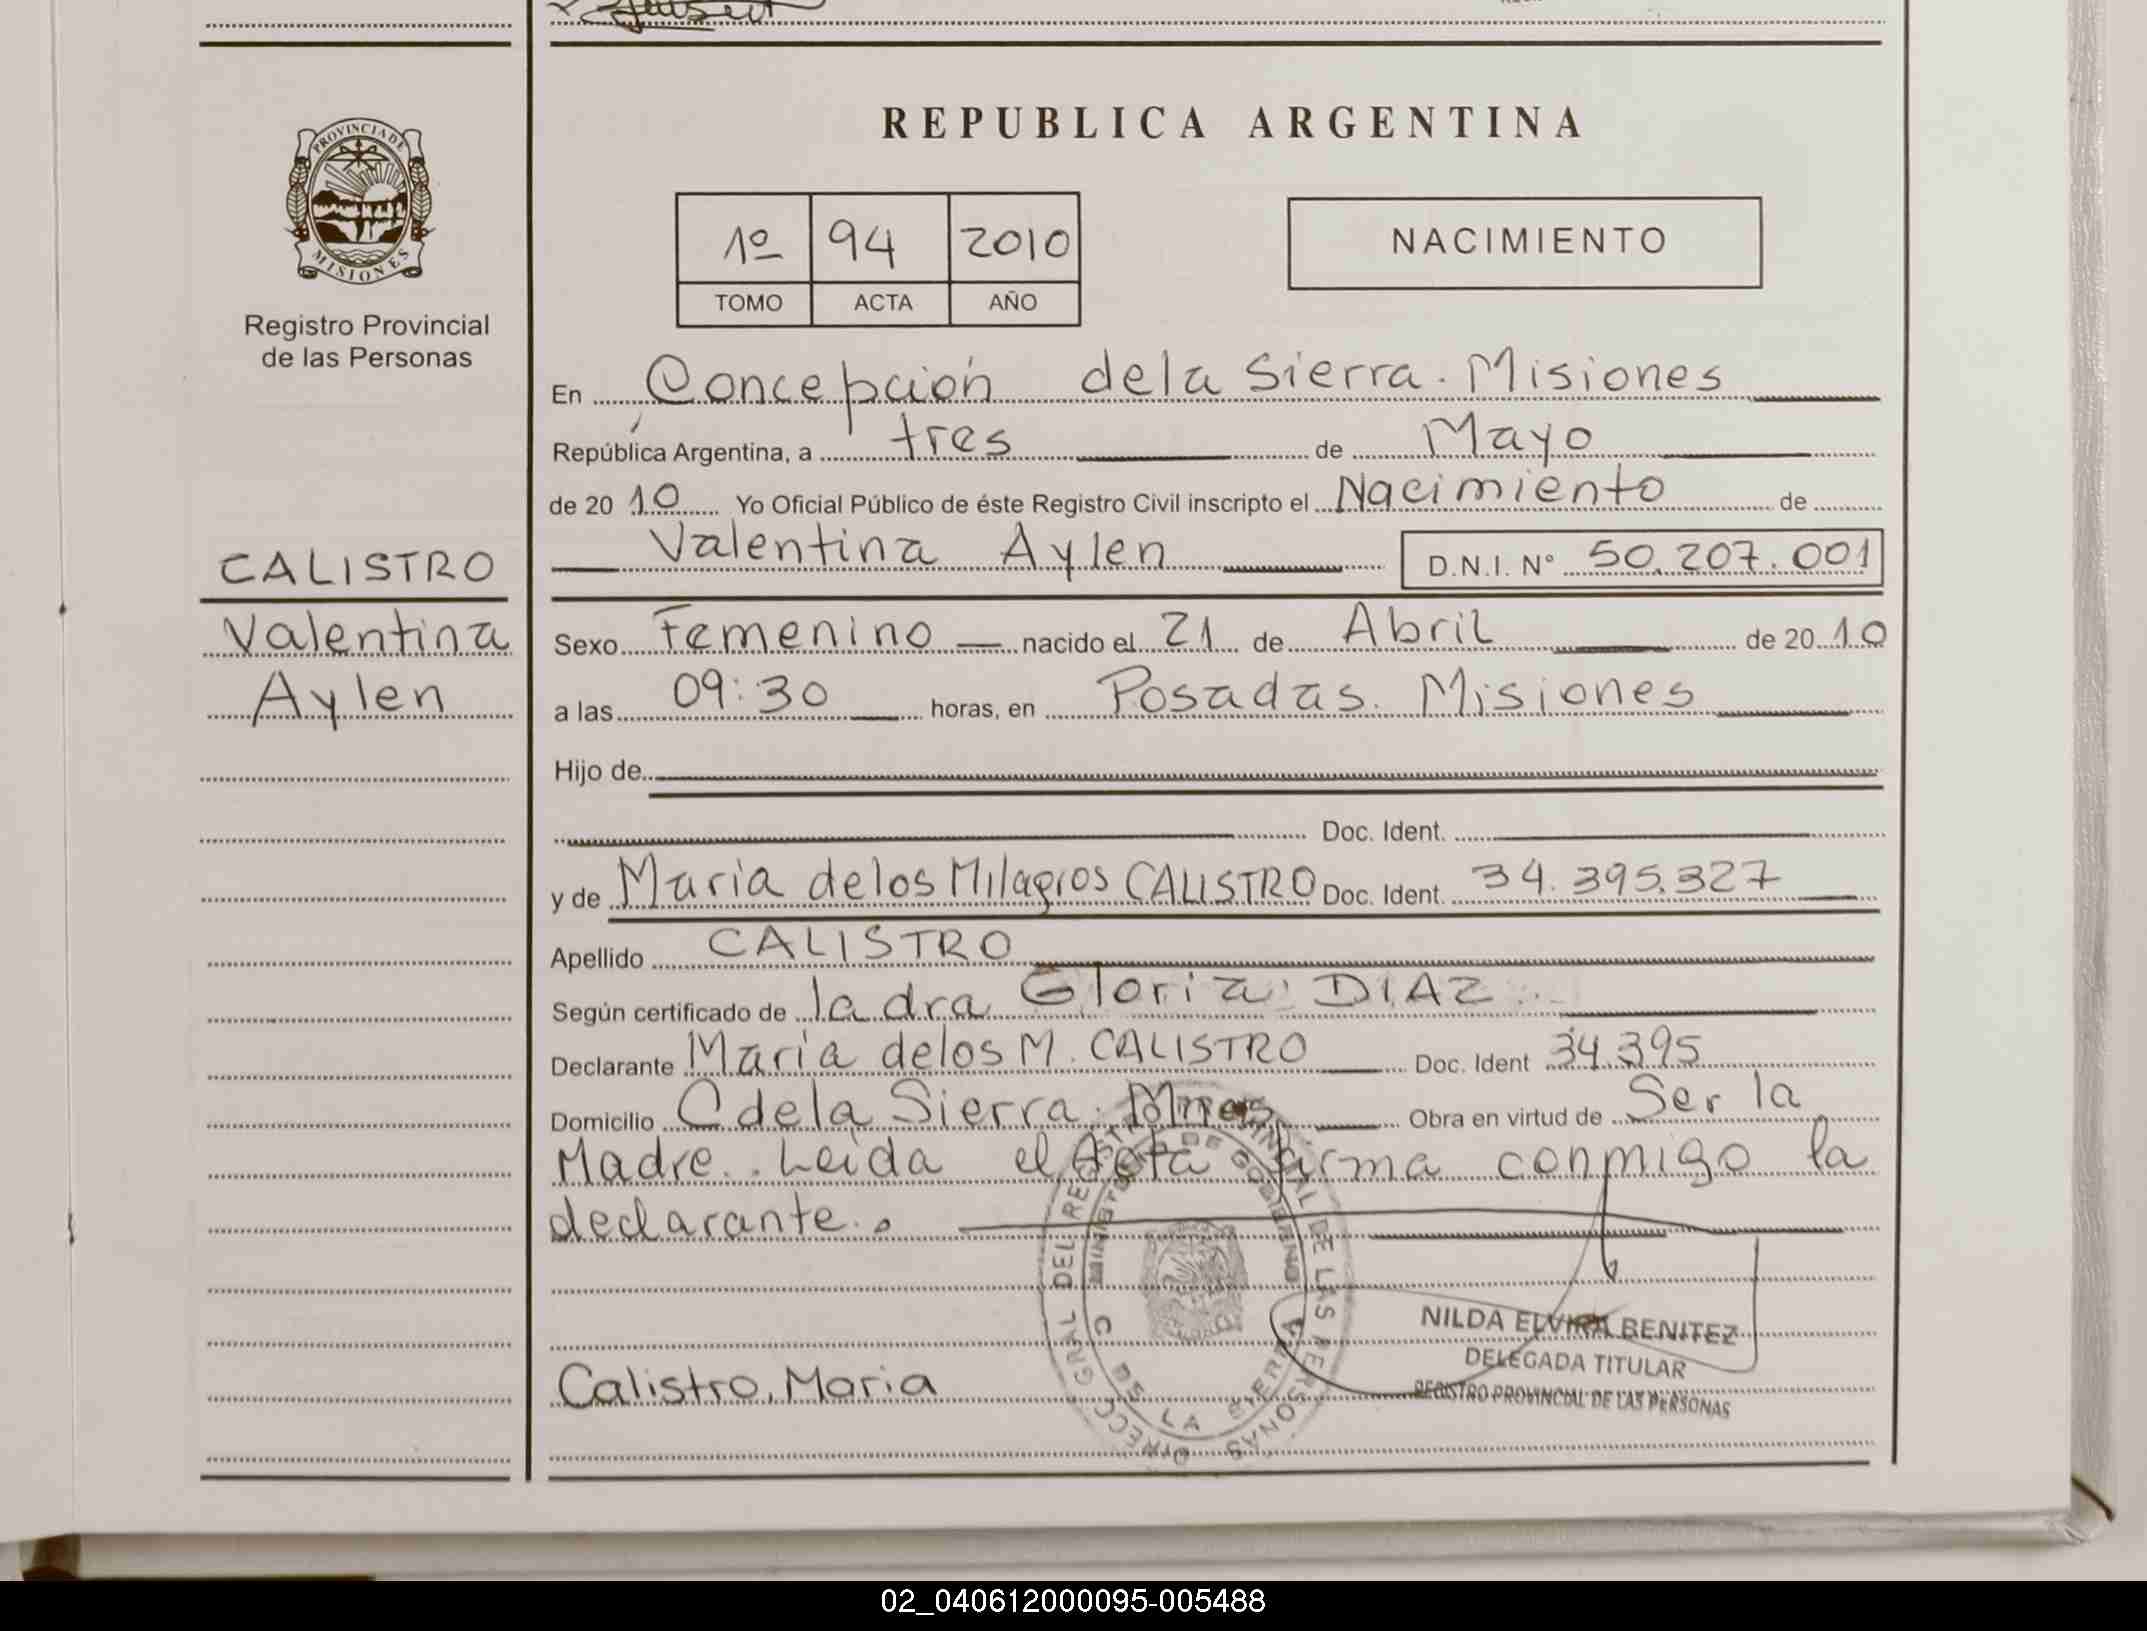 PROVINCIA DE
MISIONES
Registro Provincial
de las Personas
CALISTRO
Valentina
Aylen
REPUBLICA ARGENTINA
1º 94 2010
TOMO ACTA AÑO
NACIMIENTO
En Concepción dela Sierra. Misiones
República Argentina, a tres de Mayo
de 2010 Yo Oficial Público de éste Registro Civil inscripto el Nacimiento de
Valentina Aylen D.N.I. N° 50.207.001
Sexo Femenino nacido el 21 de Abril de 2010
a las 09:30 horas, en Posadas. Misiones
Hijo de
Doc. Ident.
y de Maria delos Milagros CALISTRO Doc. Ident. 34.395.327
Apellido CALISTRO
Según certificado de la dra Gloria DIAZ
Declarante Maria delos M. CALISTRO Doc. Ident 34.395
Domicilio C dela Sierra. Mnes Obra en virtud de Ser la
Madre. Leida el Acta firma conmigo la
declarante.
DIRECC. GRAL DEL REGISTRO PROVINCIAL DE LAS PERSONAS
MINISTERIO DE GOBIERNO
C DE LA SIERRA
NILDA ELVIRA BENITEZ
DELEGADA TITULAR
REGISTRO PROVINCIAL DE LAS PERSONAS
Calistro, Maria
02_040612000095-005488